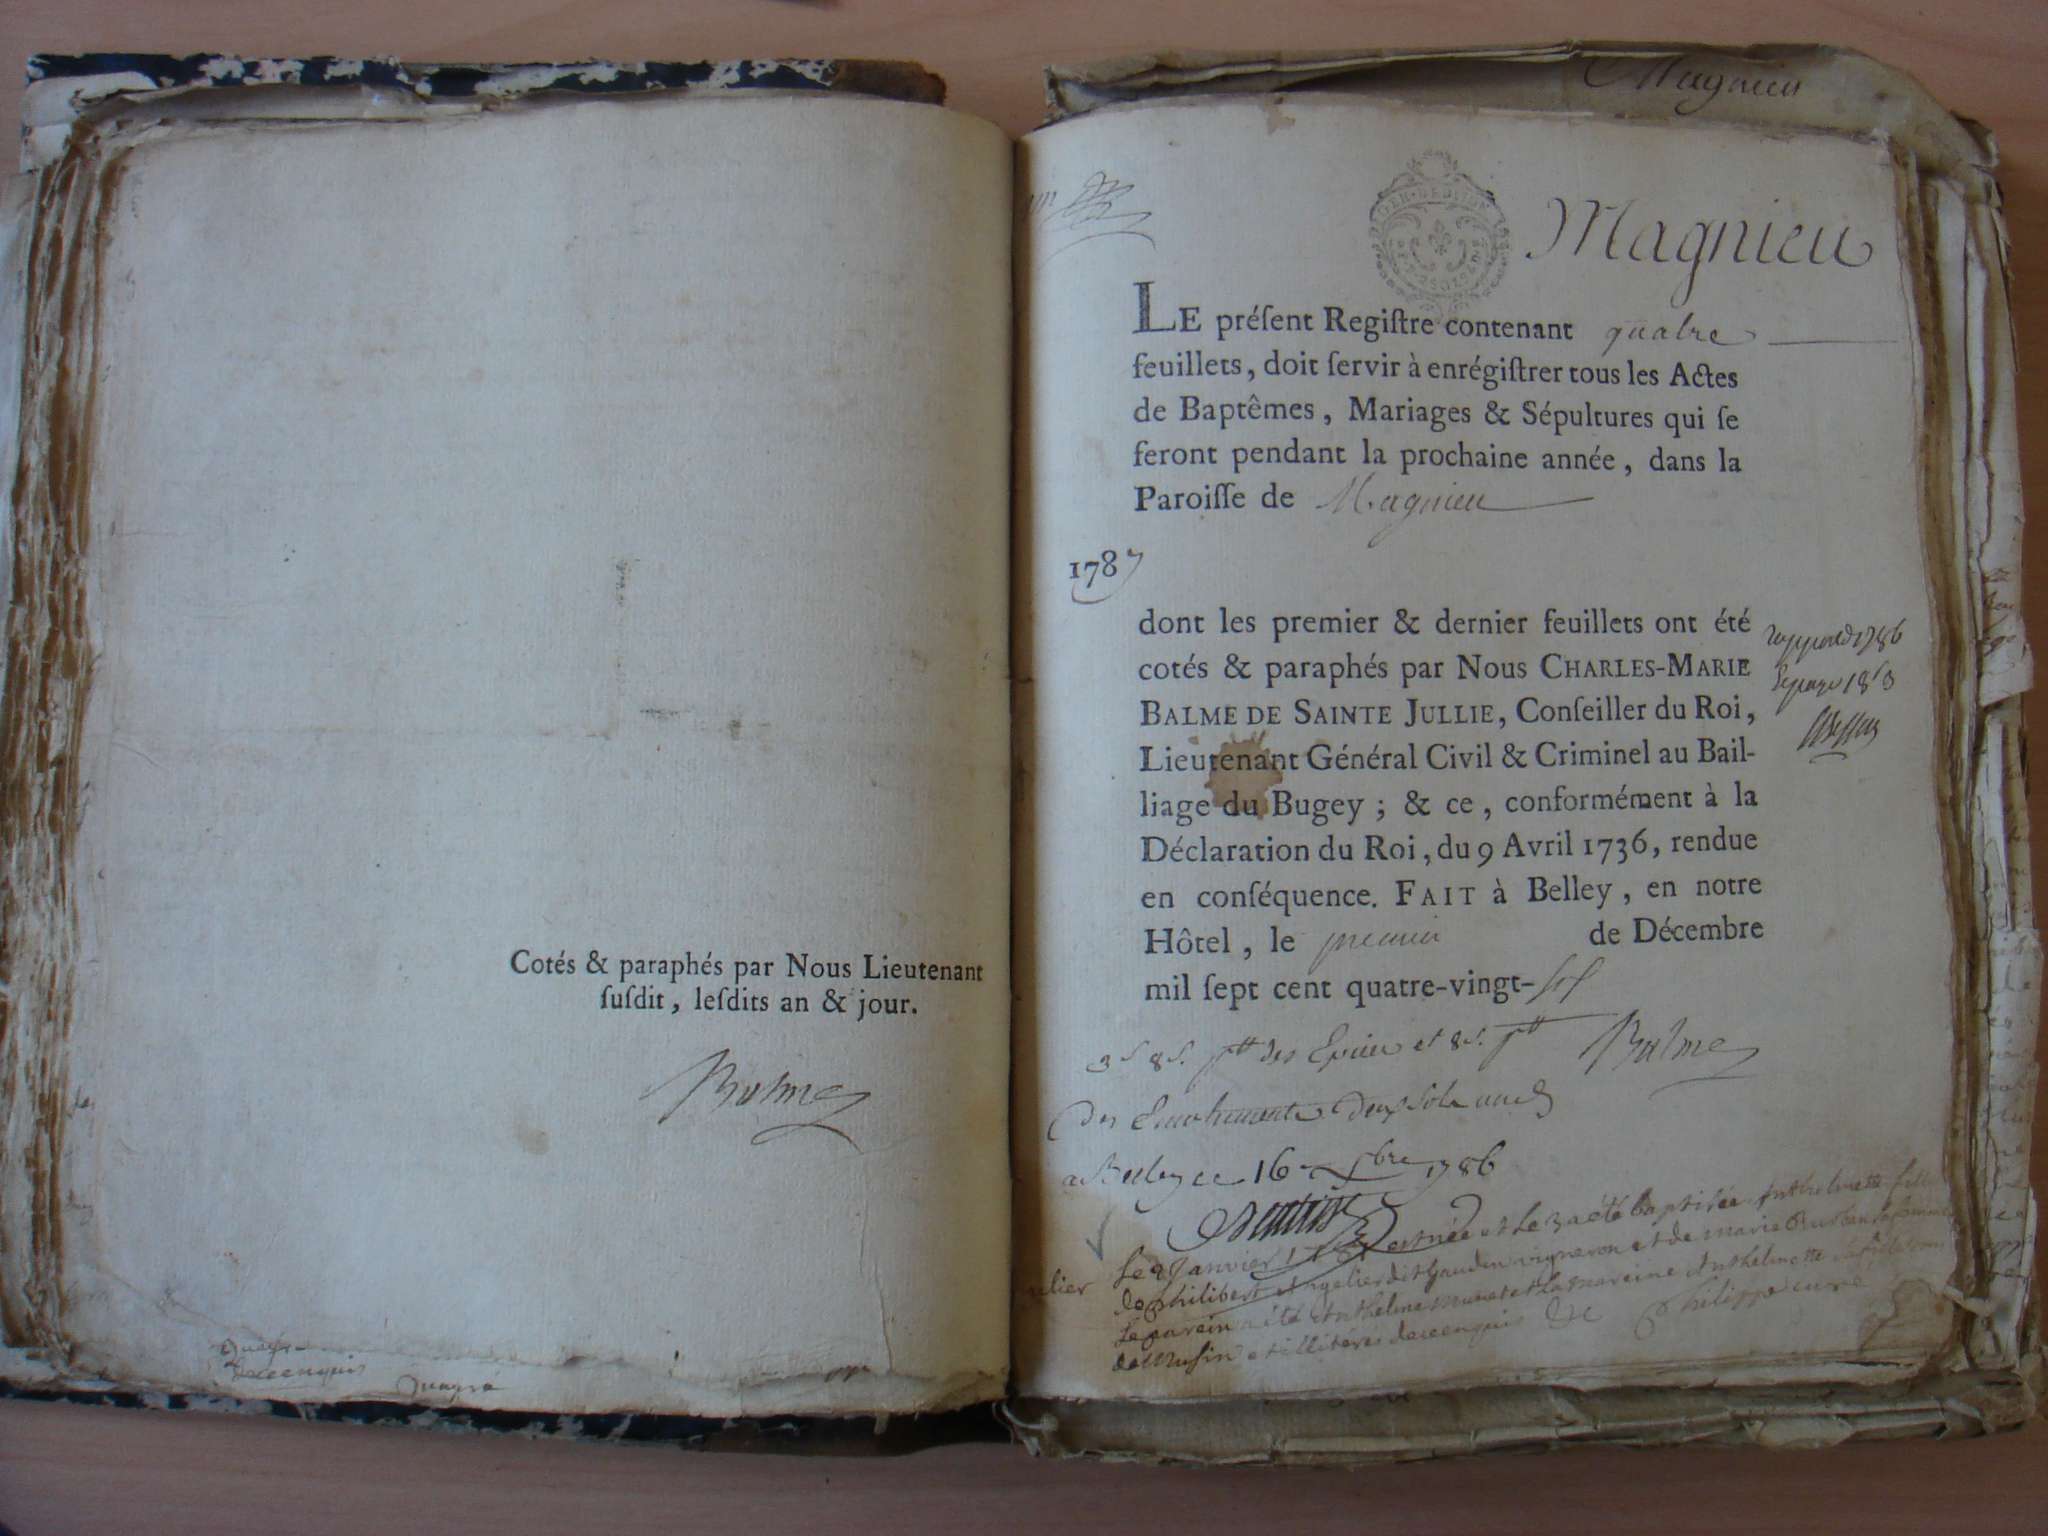 Cotés & paraphés par Nous Lieutenant
ſuſdit, leſdits an & jour.
Balme
Magnieu
Magnieu
LE préſent Regiſtre contenant quatre
feuillets, doit ſervir à enrégiſtrer tous les Actes
de Baptêmes, Mariages & Sépultures qui ſe
feront pendant la prochaine année, dans la
Paroiſſe de Magnieu
1787
dont les premier & dernier feuillets ont été
cotés & paraphés par Nous CHARLES-MARIE
BALME DE SAINTE JULLIE, Conſeiller du Roi,
Lieutenant Général Civil & Criminel au Bail-
liage du Bugey ; & ce, conformément à la
Déclaration du Roi, du 9 Avril 1736, rendue
en conſéquence. FAIT à Belley, en notre
Hôtel, le premier de Décembre
mil ſept cent quatre-vingt-
1786
Balme
des Emoluments deux sols
a Belley ce 16 xbre 1786
Le 2 Janvier est née et le 3 a été baptisée Anthelmette fille
de philibert Angelier dit Gauden vigneron et de marie
Le parein a été Anthelme et la mareine Anthelmette
de Musin et illiteres de ce enquis Philippe curé